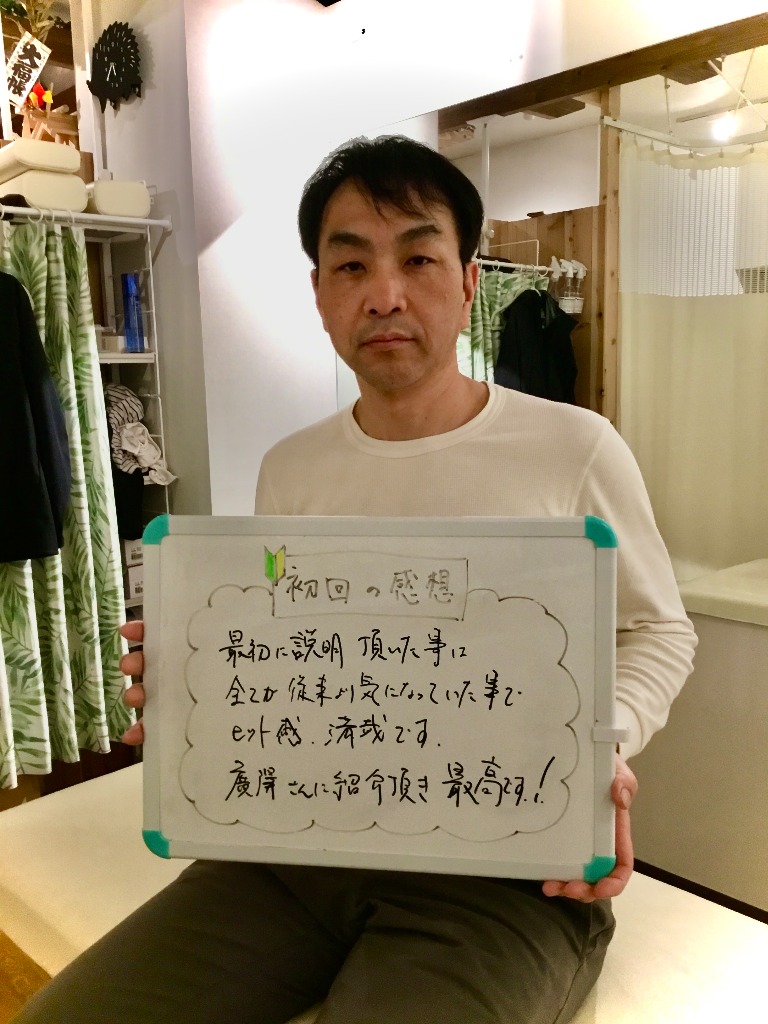 大福帳
初回の感想
最初に説明頂いた事に
全てが従来より気になっていた事で
ヒット感、満載です。
さんに紹介頂き最高です!